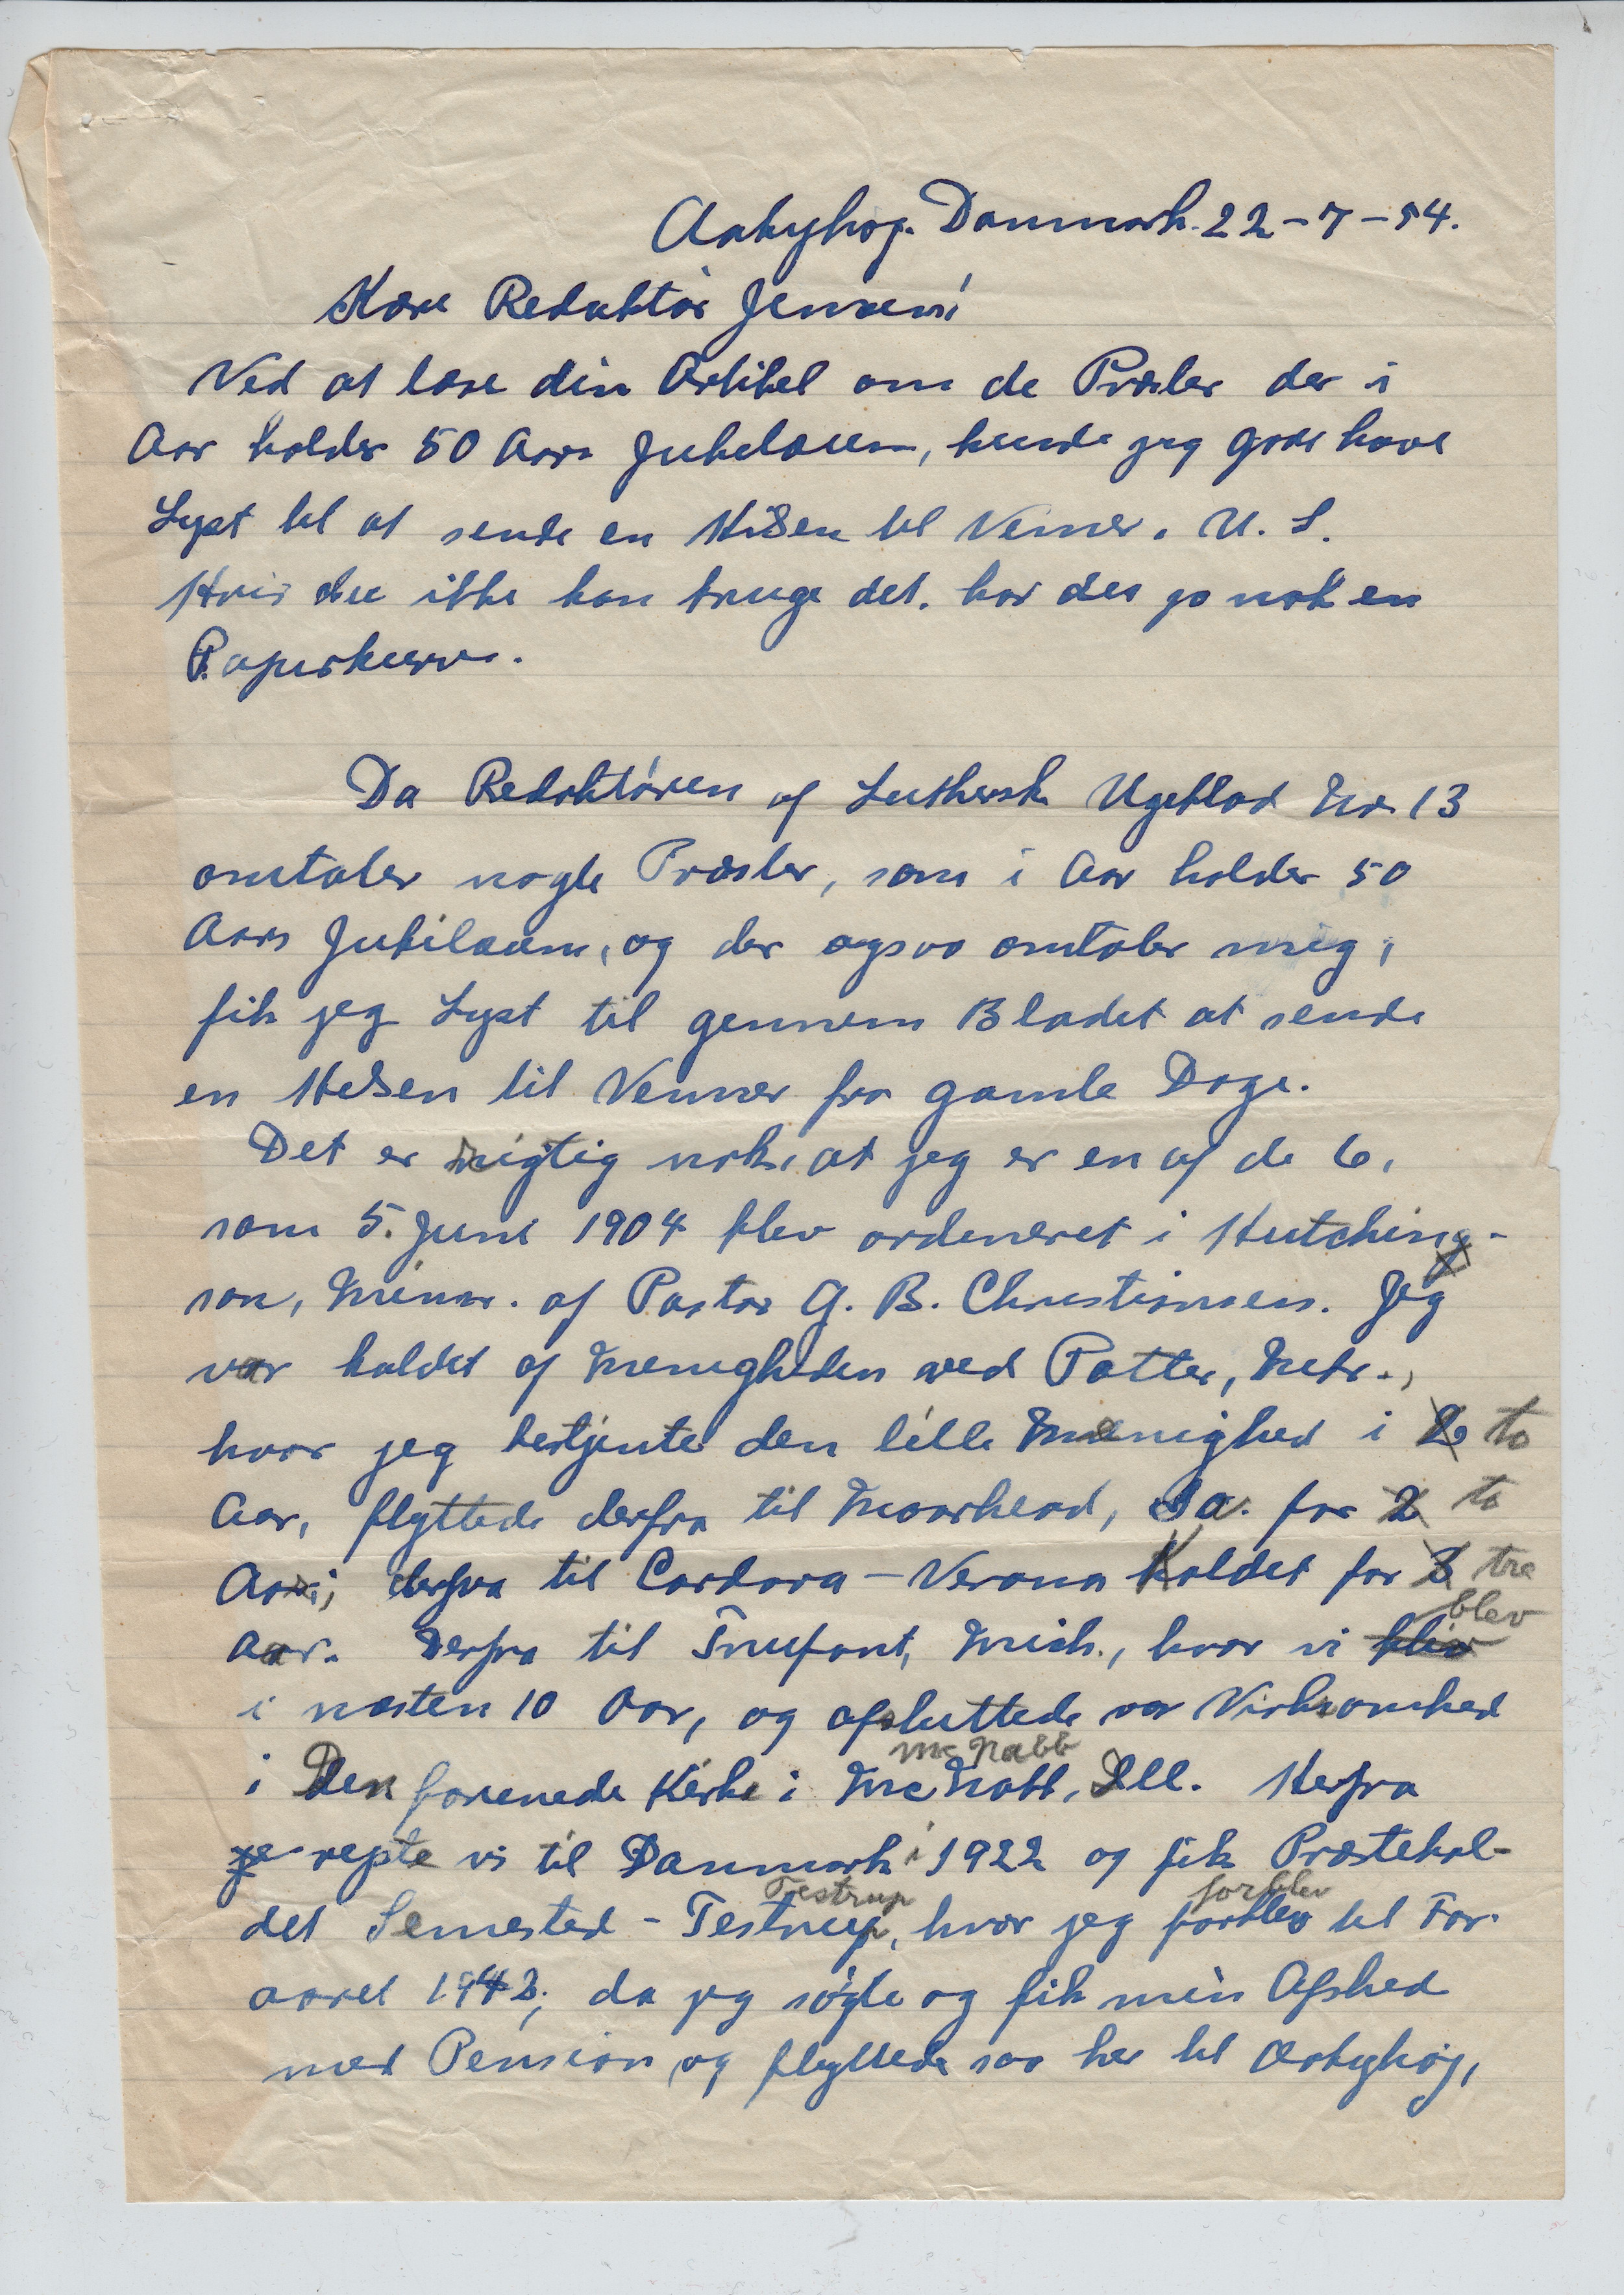 Aabyhøj. Danmark. 22-7-54.
Kære Redaktør Jensen!
Ved at læse din Artikel om de Præster der i
Aar holder 50 Aars Jubelæum, kunde jeg godt have
Lyst til at sende en Hilsen til Venner i U. S.
Hvis du ikke kan bruge det, har du jo nok en
Papirkurv.
Da Redaktøren af Luthersk Ugeblad Nr. 13
omtaler nogle Præster, som i Aar holder 50
Aars Jubilæum, og der ogsaa omtaler mig,
fik jeg Lyst til gennem Bladet at sende
en Hilsen til Venner fra gamle Dage.
Det er rigtig nok, at jeg er en af de 6,
som 5. Juni 1904 blev ordeneret i Hutching-
son, Minn. af Pastor G. B. Christiansen. Jeg
var kaldet af Menigheden ved Potter, Nebr.,
hvor jeg betjente den lille Menighed i 2 to
Aar, flyttede derfra til Moorhead, Ia. for 2 to
Aar; derfra til Cordova-Verona Kaldet for 3 tre
blev
Aar. Derfra til Trufant, Mich., hvor vi bliv
i næsten 10 Aar, og afsluttede vor Virksomhed
Mc Nabb
i Den forenede Kirke i McNabb, Ill. Herfra
je rejste vi til Danmark i 1922 og fik Præstekal-
Testrup forblev
det Simested - Testrup, hvor jeg forblev til For-
aaret 1942, da jeg søgte og fik min Afsked
med Pension og flyttede saa her til Aabyhøj,